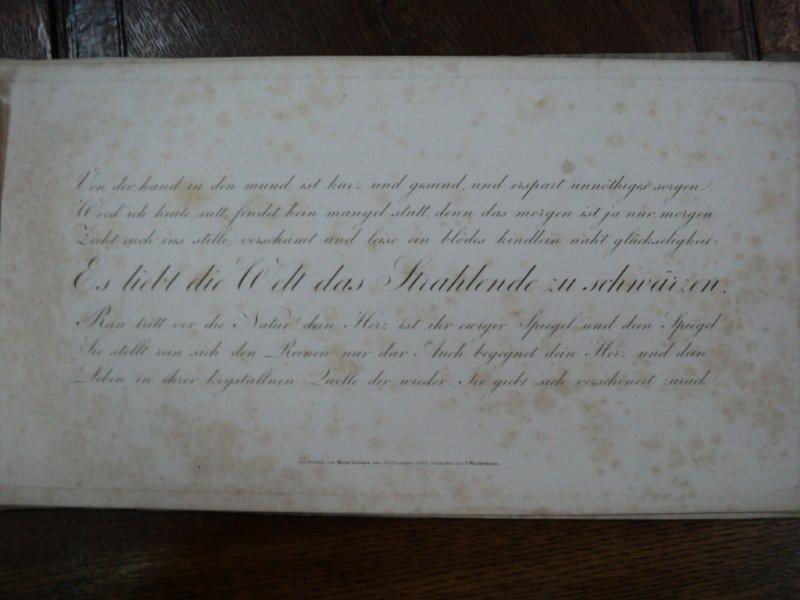 Von der hand in den mund, ist kurz und gesund, und erspart unnöthige sorgen.
Werd ich heute satt, findet kein mangel statt, denn das morgen ist ja nur morgen.
Zieht euch ins stille, verschämt und leise ein blödes kindlein naht glückseligkeit.
Es liebt die Welt das Strahlende zu schwärzen.
Rein tritt vor die Natur! dein Herz ist ihr ewiger Spiegel, und dein Spiegel
Sie stellt rein sich den Reinen nur dar. Auch begegnet dein Herz und dein
Leben in ihrer krystallnen Quelle dir wieder. Sie giebt sich verschönert zurück.
von am December von